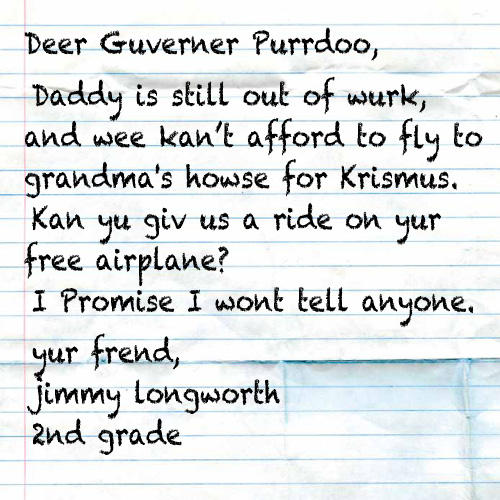 Deer Guverner Purrdoo,
Daddy is still out of wurk,
and wee kan't afford to fly to
grandma's howse for Krismus.
Kan yu giv us a ride on yur
free airplane?
I Promise I wont tell anyone.
yur frend,
jimmy longworth
2nd grade